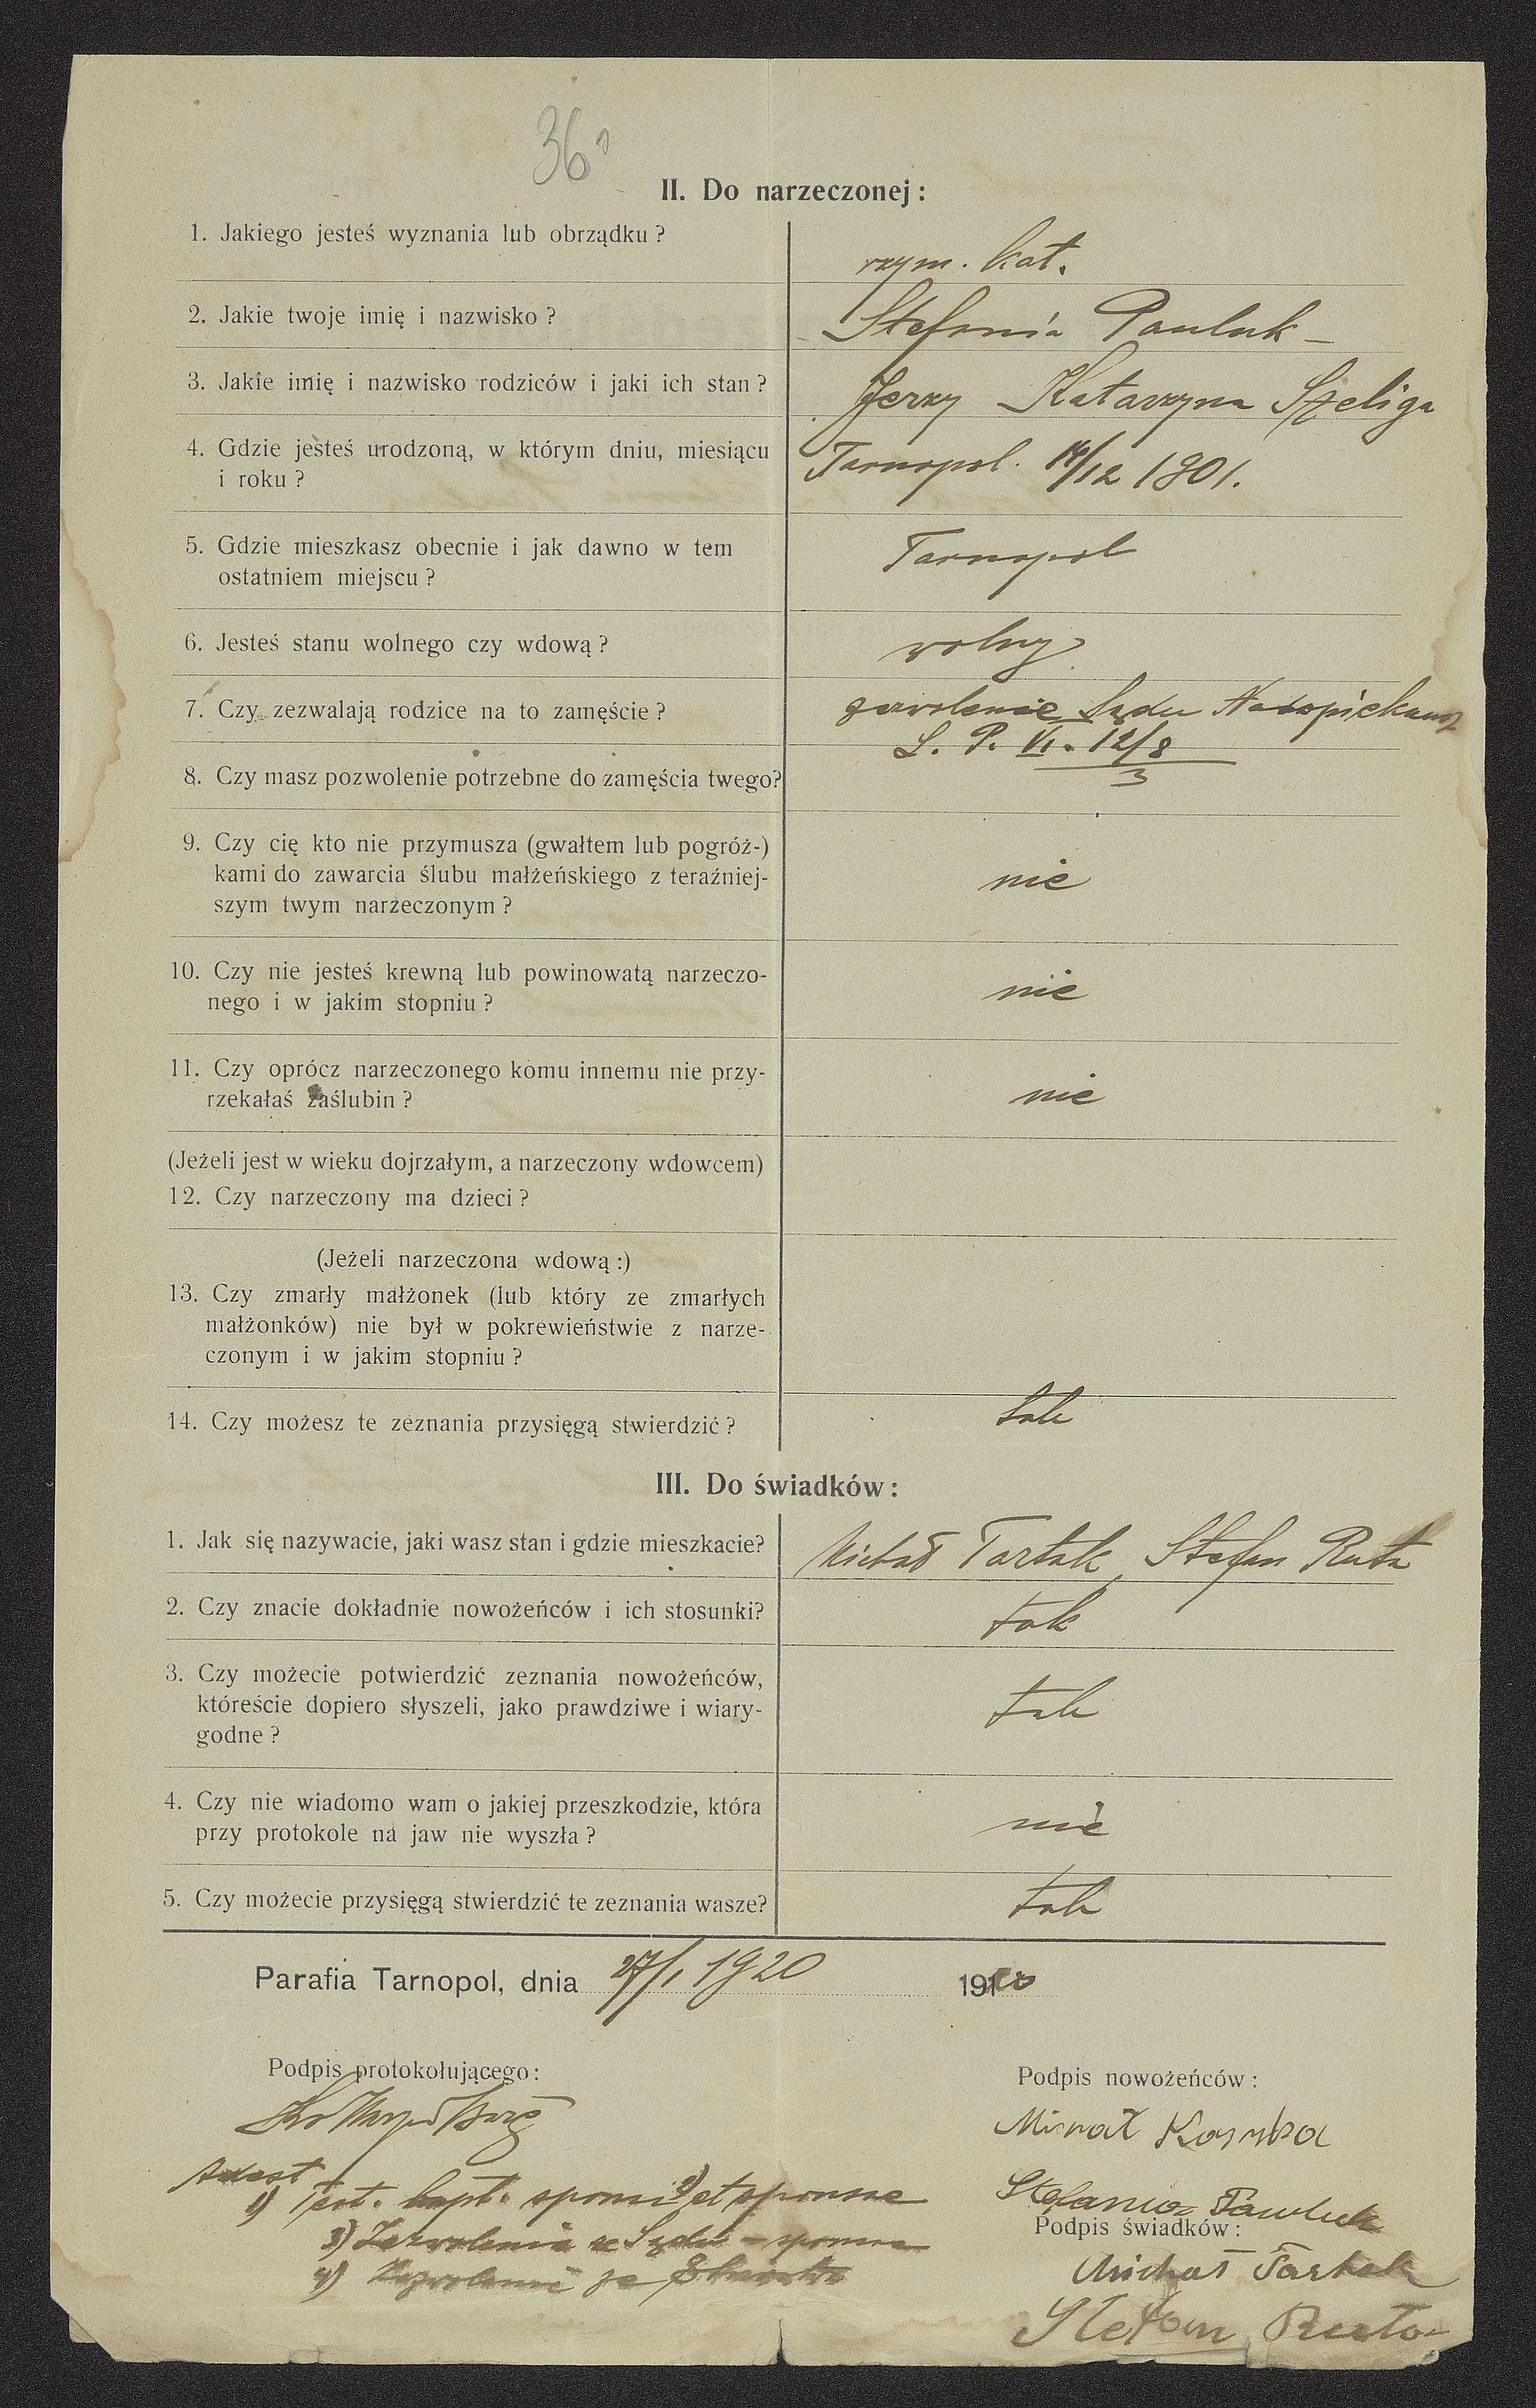 36
II. Do narzeczonej:
1. Jakiego jesteś wyznania lub obrządku?
rzym. kat.
2. Jakie twoje imię i nazwisko?
Stefania Pawluk
3. Jakie imię i nazwisko rodziców i jaki ich stan?
Jerzy Katarzyna Szeliga
4. Gdzie jesteś urodzoną, w którym dniu, miesiącu
i roku?
Tarnopol. 14/12 1901.
5. Gdzie mieszkasz obecnie i jak dawno w tem
ostatniem miejscu?
Tarnopol
6. Jesteś stanu wolnego czy wdową?
wolny
7. Czy zezwalają rodzice na to zamęście?
zezwolenie Sądu Nadopiekuńcz
L. P. VI. 12/8
3
8. Czy masz pozwolenie potrzebne do zamęścia twego?
9. Czy cię kto nie przymusza (gwałtem lub pogróż-)
kami do zawarcia ślubu małżeńskiego z teraźniej-
szym twym narzeczonym?
nie
10. Czy nie jesteś krewną lub powinowatą narzeczo-
nego i w jakim stopniu?
nie
11. Czy oprócz narzeczonego komu innemu nie przy-
rzekałaś zaślubin?
nie
(Jeżeli jest w wieku dojrzałym, a narzeczony wdowcem)
12. Czy narzeczony ma dzieci?
(Jeżeli narzeczona wdową:)
13. Czy zmarły małżonek (lub który ze zmarłych
małżonków) nie był w pokrewieństwie z narze-
czonym i w jakim stopniu?
14. Czy możesz te zeznania przysięgą stwierdzić?
tak
III. Do świadków:
1. Jak się nazywacie, jaki wasz stan i gdzie mieszkacie?
Michał Tartak, Stefan Ruta
2. Czy znacie dokładnie nowożeńców i ich stosunki?
tak
3. Czy możecie potwierdzić zeznania nowożeńców,
któreście dopiero słyszeli, jako prawdziwe i wiary-
godne?
tak
4. Czy nie wiadomo wam o jakiej przeszkodzie, która
przy protokole na jaw nie wyszła?
nie
5. Czy możecie przysięgą stwierdzić te zeznania wasze?
tak
Parafia Tarnopol, dnia 27/1 1920 1920
Podpis protokołującego:
Podpis nowożeńców:
Adest
1) Test. bapt. sponsi 2) et sponsae
3) Zezwolenie ze Sądu – sponsae
4) Zezwolenie ze
Stefania Pawluk
Podpis świadków:
Michał Tartak
Stefan Ruta